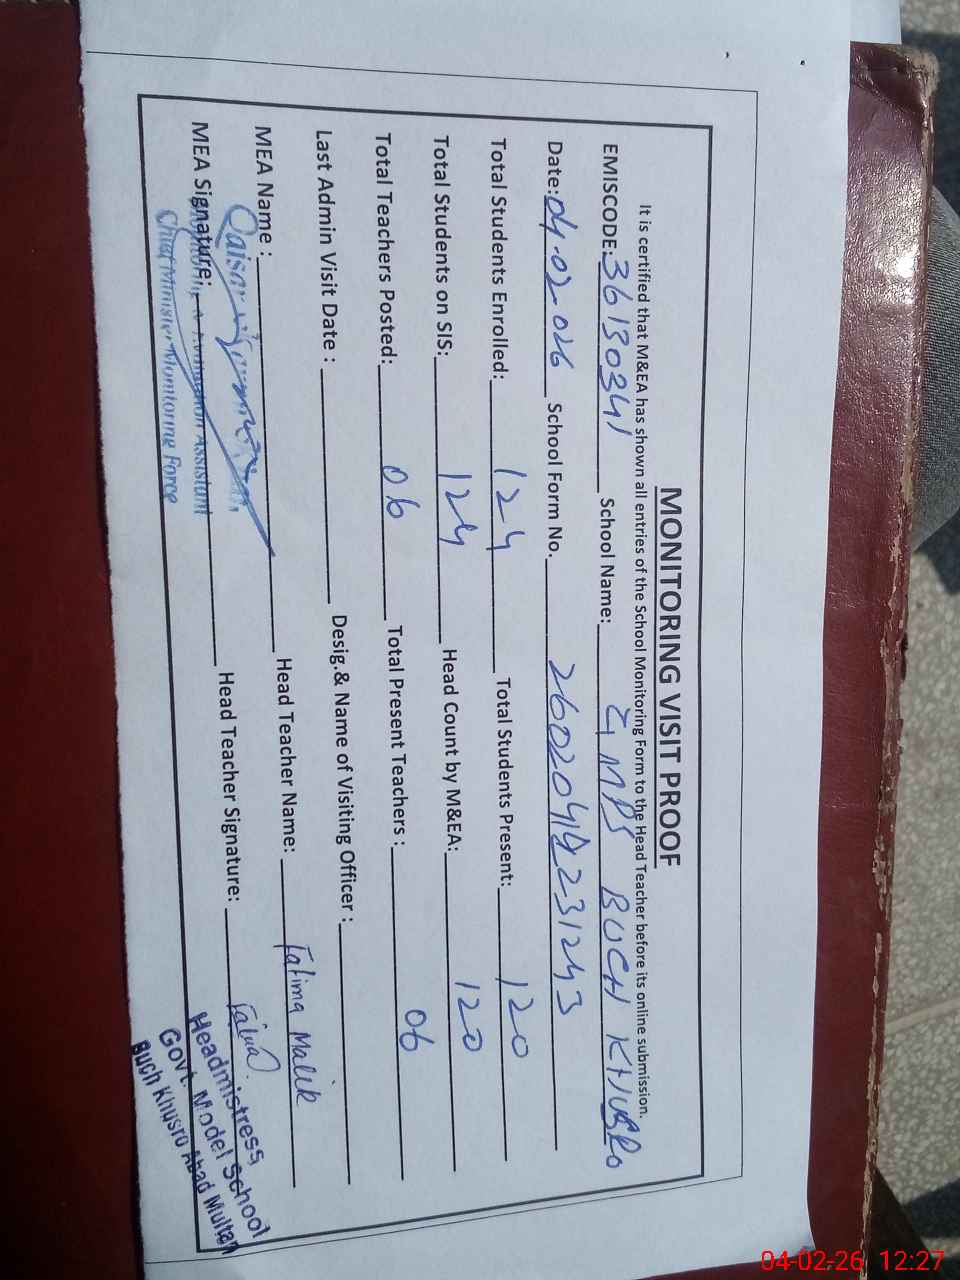 MONITORING VISIT PROOF
It is certified that M&EA has shown all entries of the School Monitoring Form to the Head Teacher before its online submission.
EMISCODE: 36130341 School Name: GMPS BUCH KHUSRO
Date: 04-02-026 School Form No. 2602049231243
Total Students Enrolled: 124 Total Students Present: 120
Total Students on SIS: 124 Head Count by M&EA: 120
Total Teachers Posted: 06 Total Present Teachers : 06
Last Admin Visit Date : Desig.& Name of Visiting Officer :
MEA Name : Qaisar Head Teacher Name: Fatima Malik
MEA Signature: Assistant Head Teacher Signature: Fatima
Chief Minister Monitoring Force
Headmistress
Govt. Model School
Buch Khusro Abad Multan
04-02-26 12:27